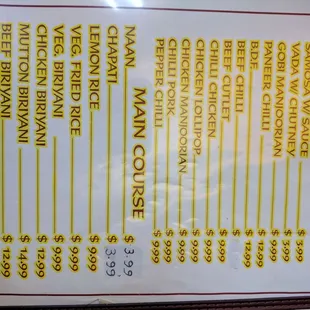 SAMOSA W/ SAUCE $ 3.99
VADA W/ CHUTNEY $ 3.99
GOBI MANJOORIAN $ 9.99
PANEER CHILLI $ 12.99
B.D.F. $ 12.99
BEEF CHILLI $ 9.99
BEEF CUTLET $ 9.99
CHILLI CHICKEN $ 9.99
CHICKEN LOLLIPOP $ 9.99
CHICKEN MANJOORIAN $ 9.99
CHILLI PORK $ 9.99
PEPPER CHILLI $ 9.99
MAIN COURSE
NAAN $ 3.99
CHAPATI $ 3.99
LEMON RICE $ 9.99
VEG. FRIED RICE $ 9.99
VEG. BIRIYANI $ 9.99
CHICKEN BIRIYANI $ 12.99
MUTTON BIRIYANI $ 14.99
BEEF BIRIYANI $ 12.99